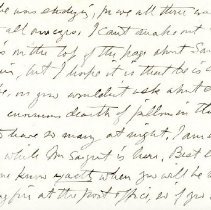 he was study's, for we all three wa
all over eyes, I can't make out
's on the top of the page about Sar
in, but I hope it is that he is c
be, or you wouldn't ask what a
curious dearth of pillows in th
to have so many at night. I am a
while Mr Sargent is here. Best l
me know exactly when you will be a
fire at the Post Office, so if you w